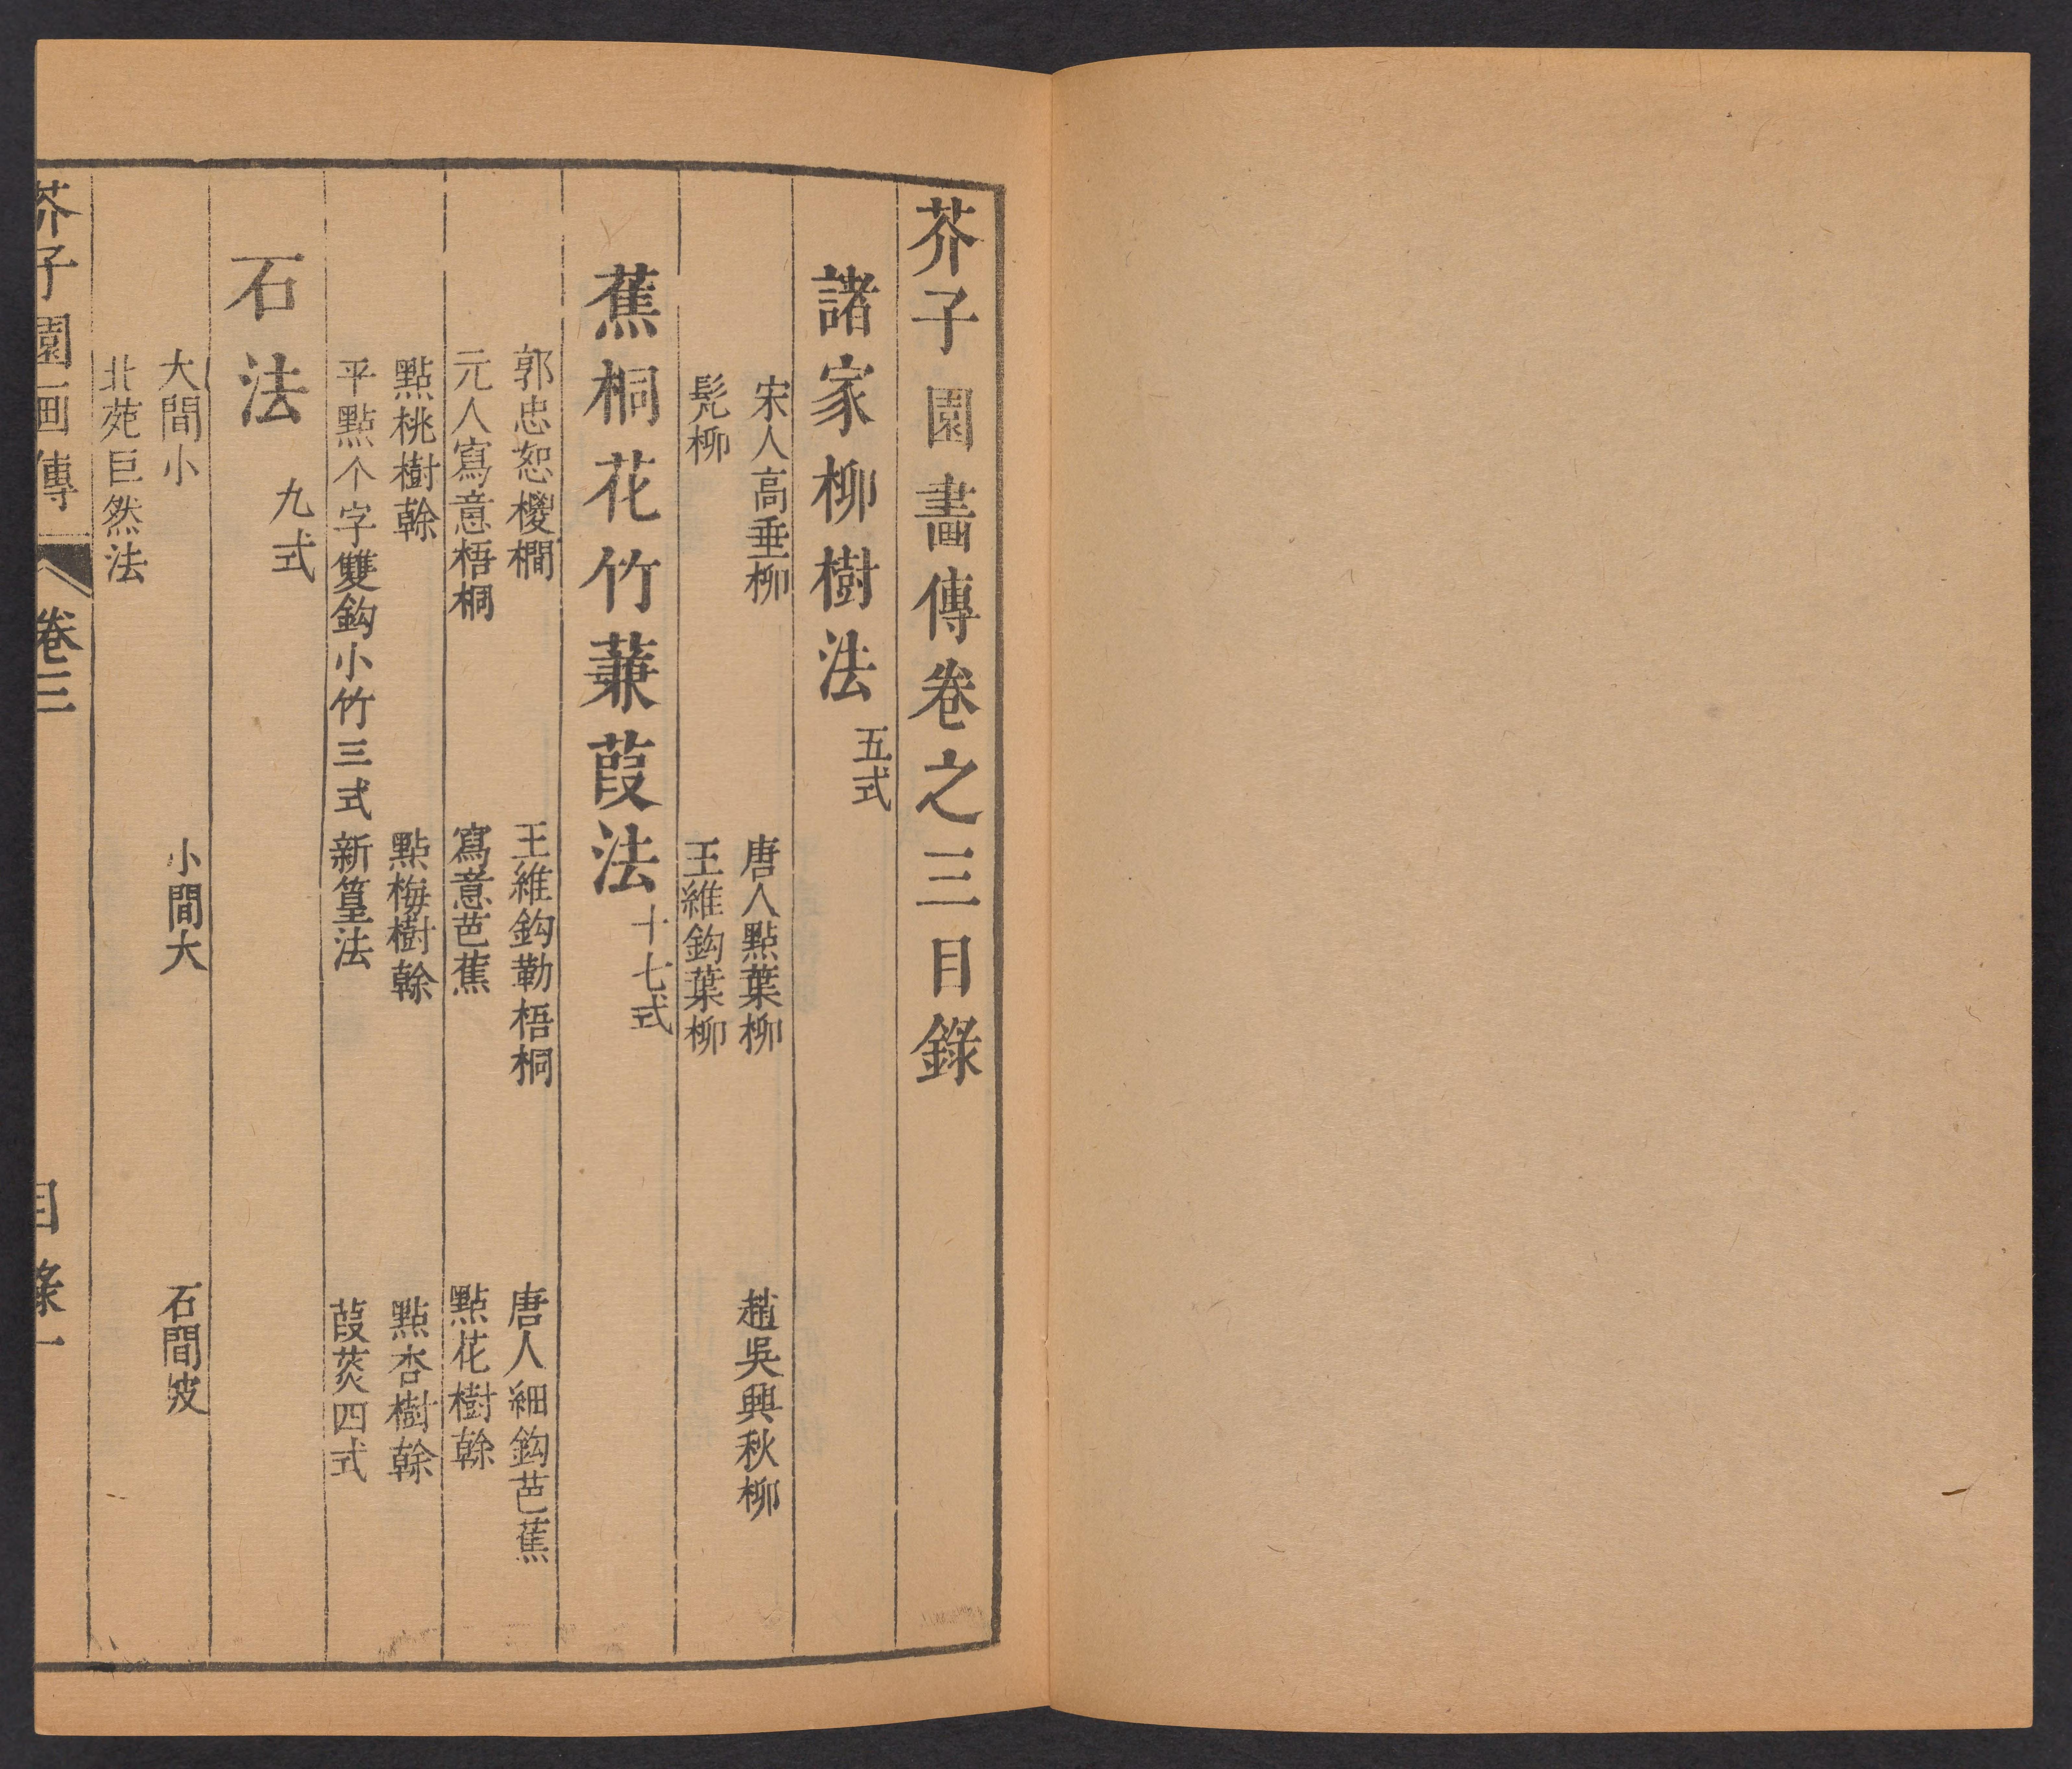 芥子園畫傳卷之三目錄
諸家柳樹法 五式
宋人高垂柳 唐人點葉柳 趙吳興秋柳
髡柳 王維鈎葉柳
蕉桐花竹蒹葭法 十七式
郭忠恕椶櫚 王維鈎勒梧桐 唐人細鈎芭蕉
元人寫意梧桐 寫意芭蕉 點花樹榦
點桃樹榦 點梅樹榦 點杏樹榦
平點个字雙鈎小竹三式 新篁法 葭菼四式
石法 九式
大間小 小間大 石間坡
北苑巨然法
芥子園画傳 卷三 目錄一